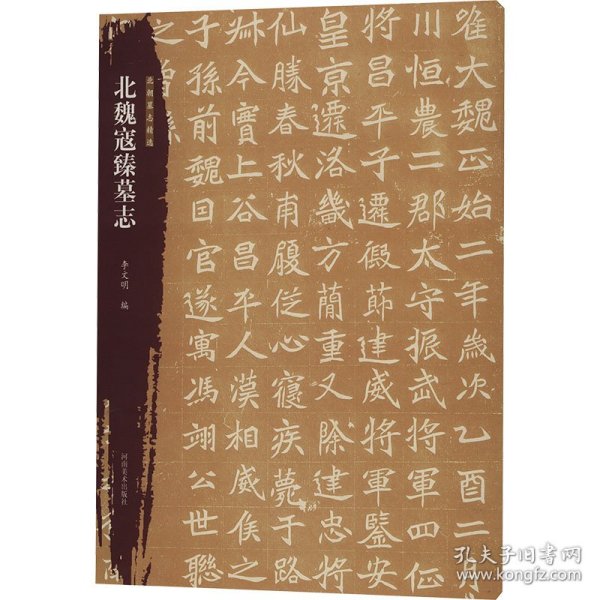 唯大魏正始二年歲次乙酉二月
川恒農二郡太守振武將軍四征
將昌平子遷假節建威將軍監安
皇京遷洛畿方簡重又除建忠將
仙勝春秋甫履從心寢疾薨于路
今實上谷昌平人漢相威侯之
子孫前魏因官遂寓馮翊公世聯
之
北朝墓志精选
北魏寇臻墓志
李文明 编
河南美术出版社
孔夫子旧书网
www.kongfz.com